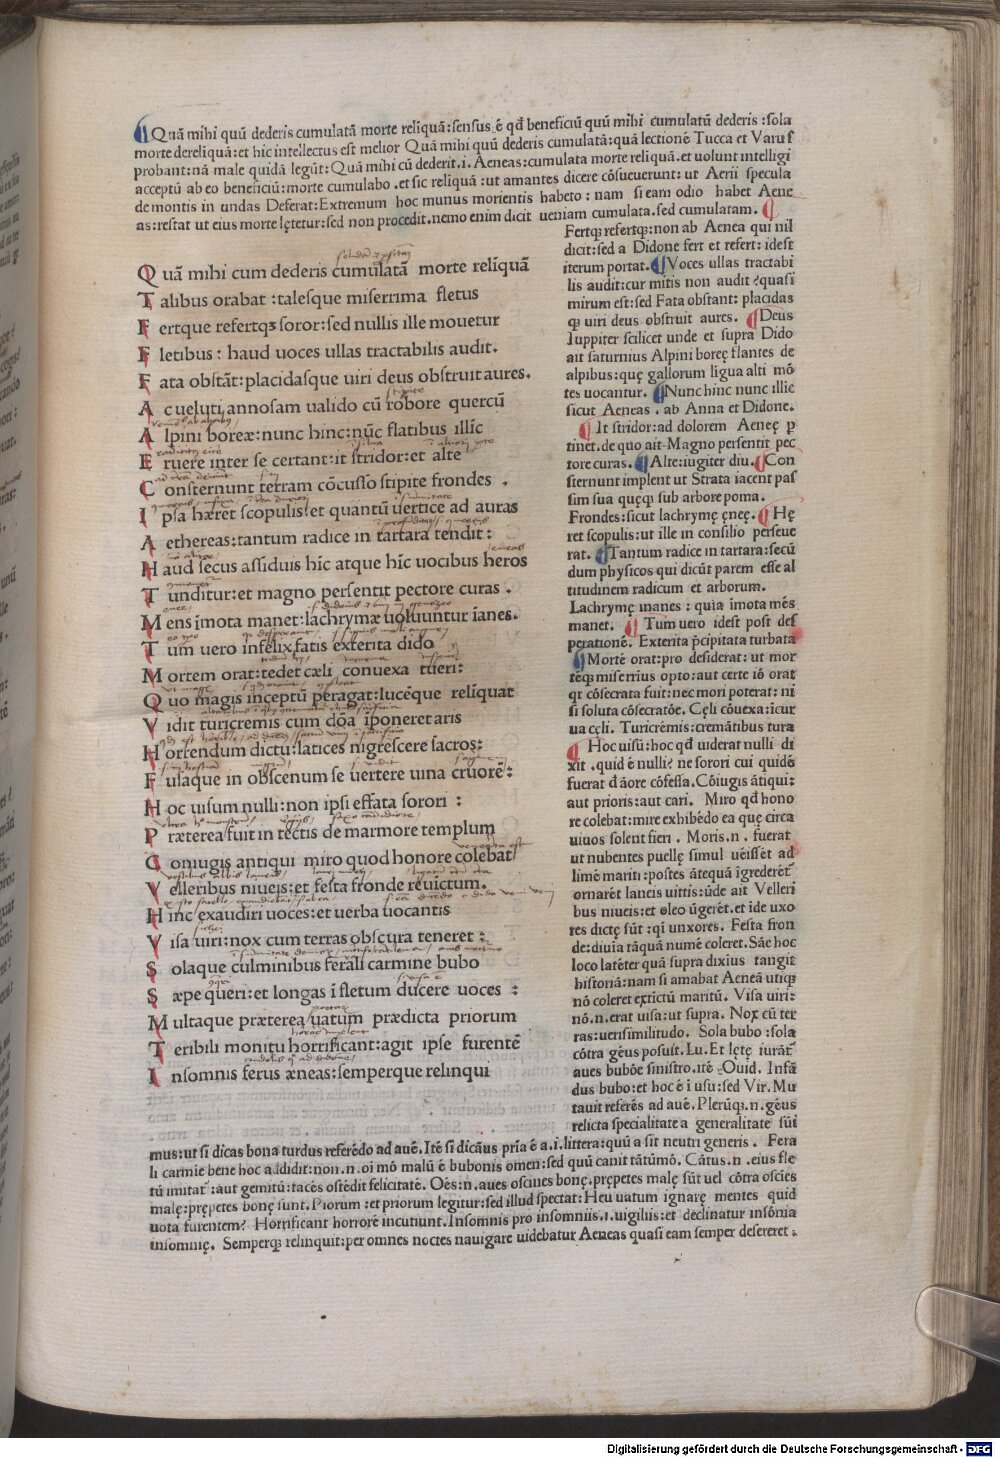 Quā mihi quū dederis cumulatā morte reliquā:sensus ē qđ beneficiū quū mihi cumulatū dederis :sola
morte dereliquā:et hic intellectus est melior Quā mihi quū dederis cumulatā:quā lectionē Tucca et Varus
probant:nā male quidā legūt:Quā mihi cū dederit.i.Aeneas:cumulata morte reliquā.et uolunt intelligi
acceptū ab eo beneficiū:morte cumulabo .et sic reliquā :ut amantes dicere cōsueuerunt: ut Aerii specula
de montis in undas Deferar:Extremum hoc munus morientis habeto : nam si eam odio habet Aene
as:restat ut eius morte lętetur:sed non procedit.nemo enim dicit ueniam cumulata.sed cumulatam.
Quā mihi cum dederis cumulatā morte relīquā
Talibus orabat :talesque miserrima fletus
Fertque refertqꝫ soror:sed nullis ille mouetur
Fletibus : haud uoces ullas tractabilis audit.
Fata obstāt:placidasque uiri deus obstruit aures.
Ac ueluti annosam ualido cū robore quercū
Alpini boreæ:nunc hinc:nūc flatibus illīc
Eruere inter se certant:it stridor:et alte
Consternunt terram cōcusso stipite frondes .
Ipsa hæret scopulis:et quantū uertice ad auras
Aethereas:tantum radice in tartara tendit :
Haud secus assiduis hīc atque hīc uocibus heros
Tunditur:et magno persentit pectore curas .
Mens īmota manet:lachrymæ uoluuntur īanes.
Tum uero infelix fatis exterita dido
Mortem orat:tedet cæli conuexa tueri:
Quo magis inceptū peragat:lucēque relīquat
Vidit turicremis cum dōa īponeret aris
Horrendum dictu:latices nigrescere sacros:
Fusaque in obscenum se uertere uina cruorē:
Hoc uisum nulli:non ipsi effata sorori :
Præterea fuit in tectis de marmore templum
Coniugis antiqui miro quod honore colebat
Velleribus niueis:et festa fronde reuictum.
Hinc exaudiri uoces:et uerba uocantis
Visa uiri:nox cum terras obscura teneret :
Solaque culminibus ferali carmine bubo
Sæpe queri:et longas ī fletum ducere uoces :
Multaque præterea uatum prædicta priorum
Teribili monitu horrificant:agit ipse furentē
Insomnis ferus æneas:semperque relinqui
Fertqꝫ refertqꝫ:non ab Aenea qui nil
dicit:sed a Didone fert et refert: idest
iterum portat. Voces ullas tractabi
lis audit:cur mitis non audit?quasi
mirum est:sed Fata obstant: placidas
qꝫ uiri deus obstruit aures. Deus
Iuppiter scilicet unde et supra Dido
ait saturnius Alpini boreę flantes de
alpibus:quę gallorum ligua alti mō
tes uocantur. Nunc hinc nunc illic
sicut Aeneas . ab Anna et Didone.
It stridor:ad dolorem Aeneę p
tinet.de quo ait Magno persentit pec
tore curas. Alte:iugiter diu. Con
sternunt implent ut Strata iacent pas
sim sua quęqꝫ sub arbore poma.
Frondes:sicut lachrymę ęneę. Hę
ret scopulis:ut ille in consilio perseue
rat. Tantum radice in tartara:secū
dum physicos qui dicūt parem esse al
titudinem radicum et arborum.
Lachrymę inanes : quia īmota mēs
manet. Tum uero idest post des
perationē. Exterita p̄cipitata turbata
Mortē orat:pro desiderat: ut mor
tēqꝫ miserrius opto:aut certe iō orat
qr cōsecrata fuit:nec mori poterat: ni
si soluta cōsecratōe. Cęli cōuexa:icur
ua cęli. Turicremis:cremātibus tura
Hoc uisū:hoc qđ uiderat nulli di
xit .quid ē nulli? ne sorori cui quidē
fuerat đ āore cōfessa.Cōiugis ātiqui:
aut prioris:aut cari. Miro qđ hono
re colebat:mire exhibēdo ea quę circa
uiuos solent fieri . Moris.n. fuerat
ut nubentes puellę simul uēissēt ad
limē mariti:postes ātequā īgrederēt
ornarēt laneis uittis:ūde ait Velleri
bus niueis:et oleo ūgerēt.et īde uxo
res dictę sūt :qī unxores. Festa fron
de:diuīa tāquā numē coleret.Sāe hoc
loco latēter quā supra dixius tangit
historiā:nam si amabat Aeneā utiqꝫ
nō coleret extīctū maritū. Visa uiri:
nō.n.erat uisa:ut supra. Nox cū ter
ras:uerisimilitudo. Sola bubo :sola
cōtra gēus posuit.Lu.Et lętę iurāt
aues bubōe sinistro.itē Ouid. Infā
dus bubo:et hoc ē ī usu:sed Vir.Mu
tauit referēs ad auē.Plerūqꝫ.n.gēus
relicta specialitate a generalitate sūi
mus:ut si dicas bona turdus referēdo ad auē.Itē si dicāus prīa ē a.i.littera:quū a sit neutri generis . Fera
li carmie bene hoc addidit:non.n.oī mō malū ē bubonis omen:sed quū canit tātūmō.Cātus.n.eius fle
tū imitat :aut gemitū:tacēs ostēdit felicitatē. Oēs:n.aues oscines bonę.prępetes malę sūt uel cōtra oscīes
malę:prępetes bonę sunt.Piorum :et priorum legitur:sed illud spectat:Heu uatum ignarę mentes quid
uota furentem? Horrificant horrorē incutiunt.Insomnis pro insomniis.ı.uigiliis:et declinatur insōnia
insomnię. Semperqꝫ relinquit:per omnes noctes nauigare uidebatur Aeneas quasi eam semper desereret .
Digitalisierung gefördert durch die Deutsche Forschungsgemeinschaft - DFG